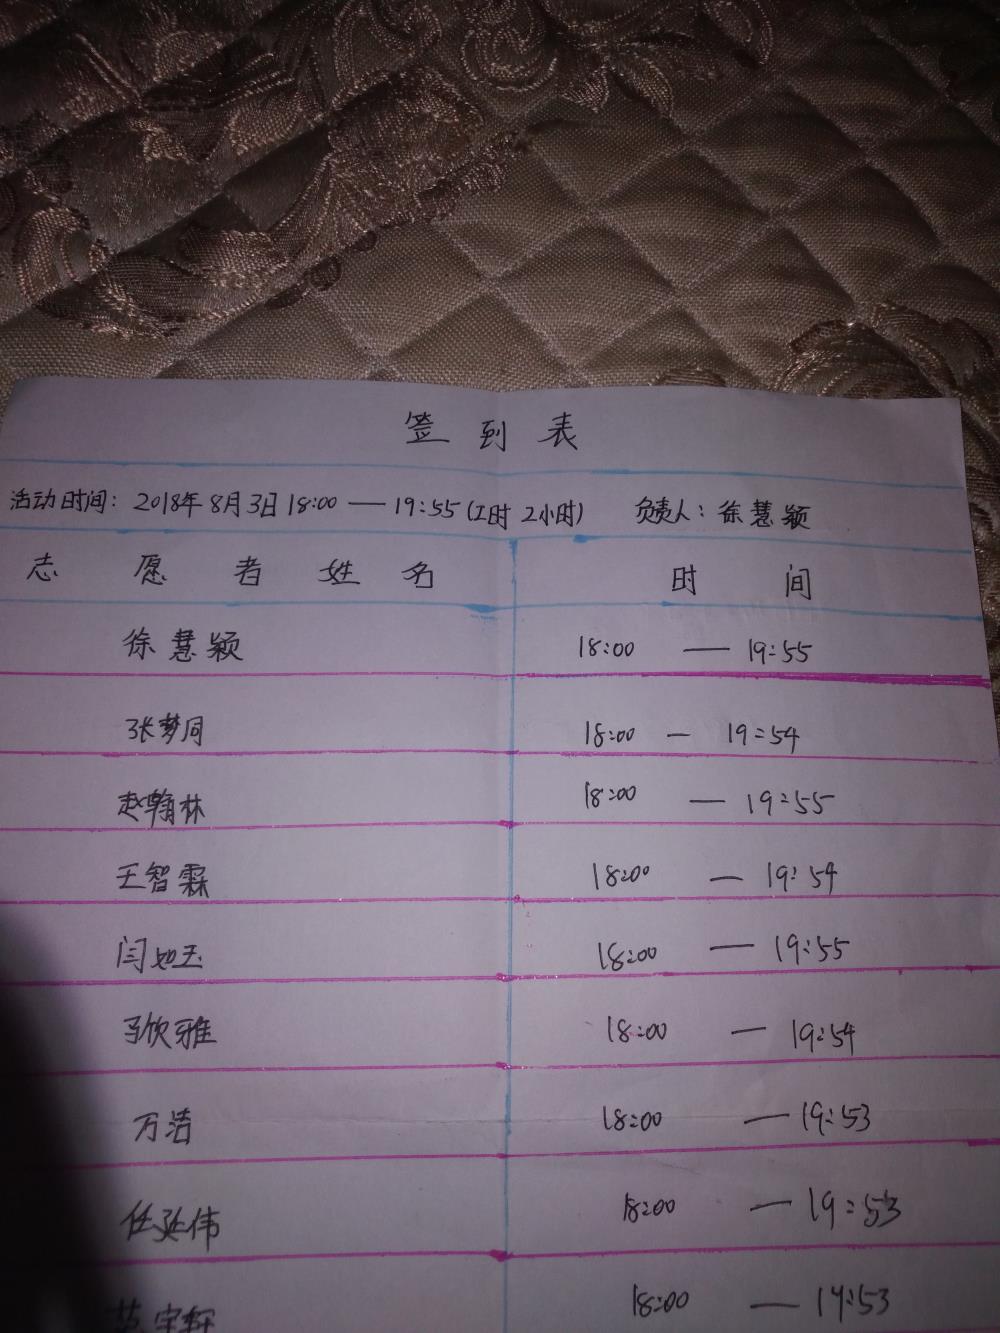 签到表
活动时间：2018年8月3日18:00——19:55(工时 2小时) 负责人：徐慧颖
志愿者姓名 时间
徐慧颖 18:00 — 19:55
张梦同 18:00 — 19:54
赵翰林 18:00 — 19:55
王智霖 18:00 — 19:54
闫如玉 18:00 — 19:55
欣雅 18:00 — 19:54
万洁 18:00 — 19:53
任延伟 18:00 — 19:53
18:00 — 19:53